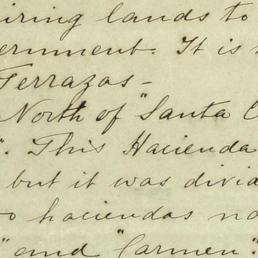 iring lands to
ernment. It is
Terrazas -
North of "Santa C
". This Hacienda
but it was divid
o haciendas na
" and "Carmen".